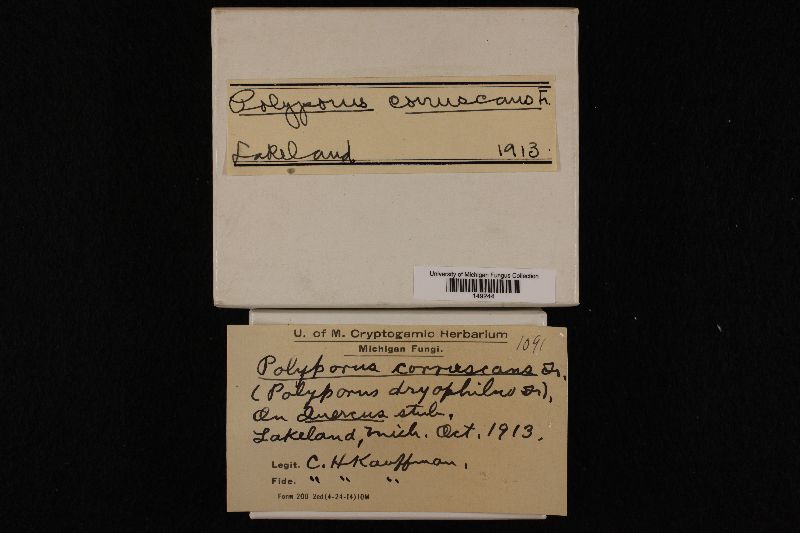 Polyporus corruscans Fr.
Lakeland 1913.
University of Michigan Fungus Collection
149244
U. of M. Cryptogamic Herbarium
Michigan Fungi. 1091
Polyporus corruscans Fr.
(Polyporus dryophilus Fr),
On Quercus stub,
Lakeland, Mich. Oct. 1913.
Legit. C. H Kauffman.
Fide. " " "
Form 200 2ed(4-24-14)10M